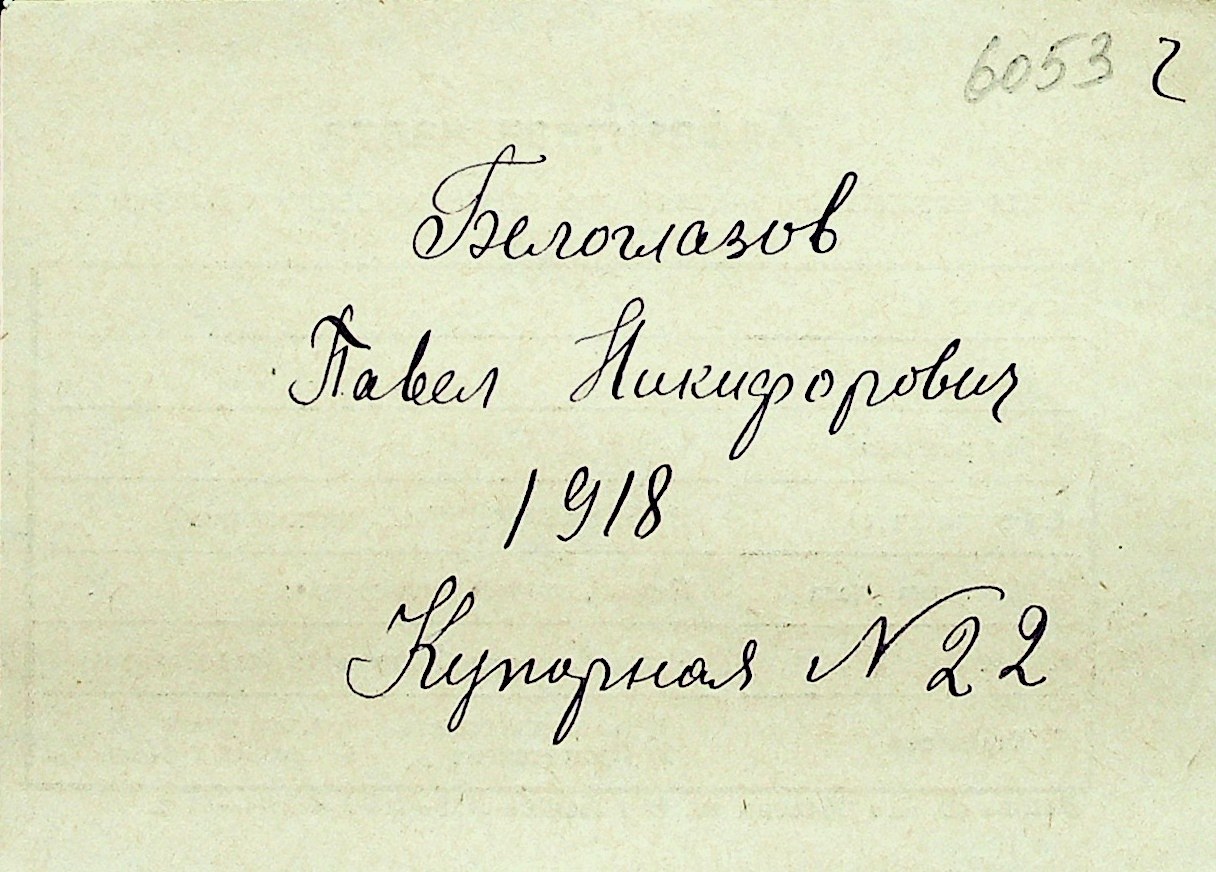 6053 2
Белоглазов
Павел Никифорович
1918
Купорная N 22